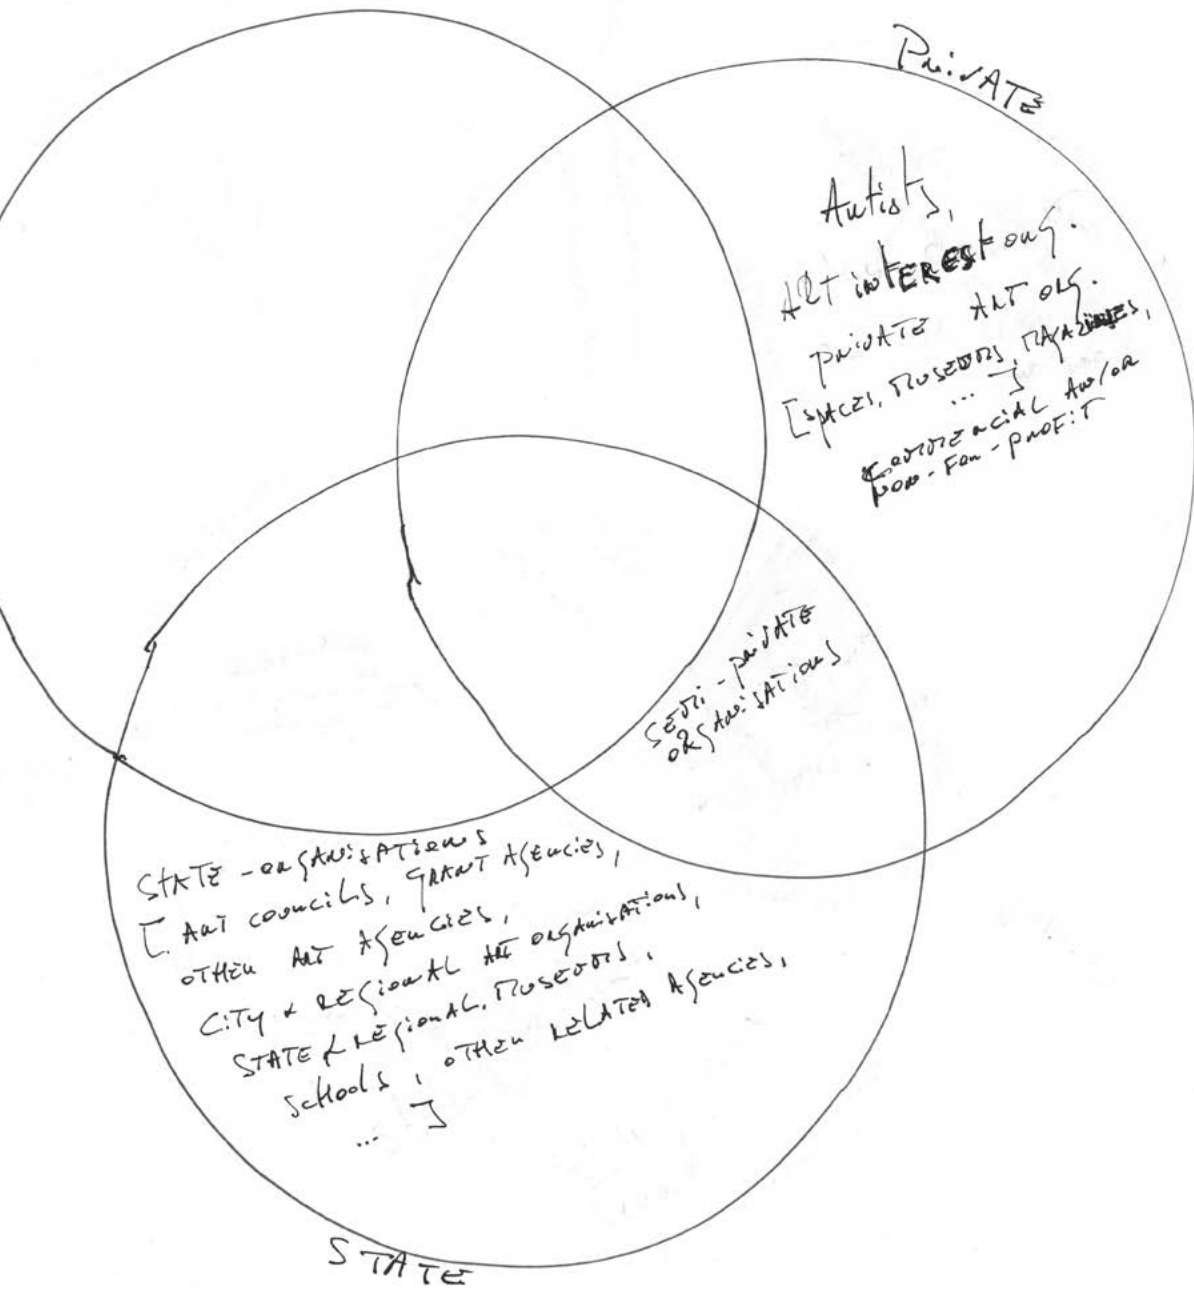 PRIVATE
Artists,
ART INTEREST ORG.
PRIVATE ART ORG.
[SPACES, MUSEUMS, MAGAZINES,
... ]
COMMERCIAL AND/OR
NON-FOR-PROFIT
SEMI-PRIVATE
ORGANISATIONS
STATE-ORGANISATIONS
[ART COUNCILS, GRANT AGENCIES,
OTHER ART AGENCIES,
CITY & REGIONAL ART ORGANISATIONS,
STATE & REGIONAL MUSEUMS,
SCHOOLS, OTHER RELATED AGENCIES,
... ]
STATE